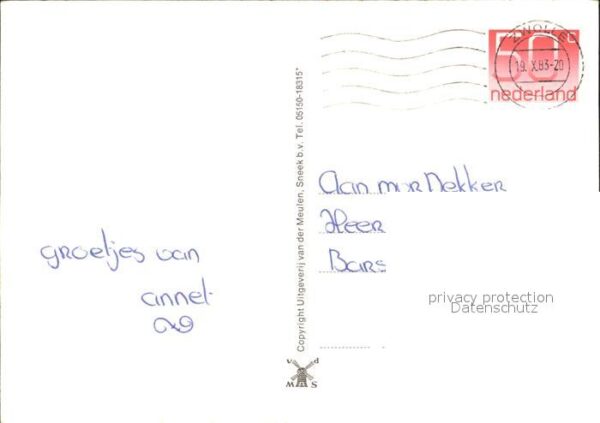 ZWOLLE
19.X.83-20
50
nederland
Copyright Uitgeverij van der Meulen, Sneek b.v. Tel. 05150-18315*
Aan
Heer
groetjes van
annet
privacy protection
Datenschutz
v d
W M S